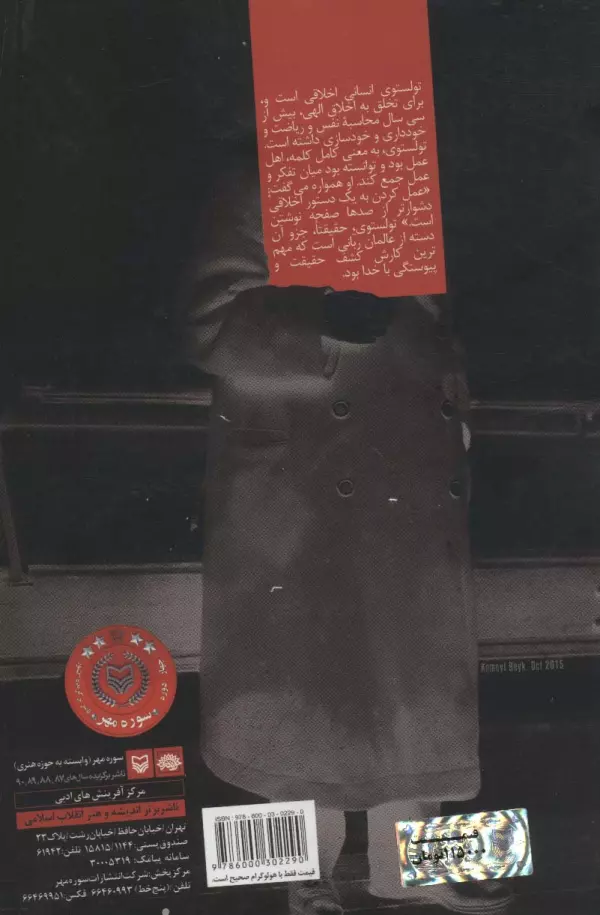 تولستوی انسانی اخلاقی است و،
برای تخلق به اخلاق الهی، بیش از
سی سال محاسبهٔ نفس و ریاضت و
خودداری و خودسازی داشته است.
تولستوی، به معنی کامل کلمه، اهل
عمل بود و توانسته بود میان تفکر و
عمل جمع کند. او همواره می‌گفت:
«عمل کردن به یک دستور اخلاقی
دشوارتر از صدها صفحه نوشتن
است.» تولستوی، حقیقتاً، جزو آن
دسته از عالمان ربانی است که مهم
ترین کارش کشف حقیقت و
پیوستگی با خدا بود.
Oct 2015
چهار دوره
سوره مهر
سوره مهر (وابسته به حوزه هنری)
ناشر برگزیده سال‌های ۸۷، ۸۸، ۸۹، ۹۰
مرکز آفرینش‌های ادبی
ناشر برتر اندیشه و هنر انقلاب اسلامی
تهران/خیابان حافظ/خیابان رشت/پلاک ۲۳
صندوق پستی: ۱۱۴۴/۱۵۸۱۵ تلفن: ۶۱۹۴۲
سامانه پیامک: ۳۰۰۰۵۳۱۹
مرکز پخش: شرکت انتشارات سوره مهر
تلفن: (پنج خط) ۶۶۴۶۰۹۹۳ فکس: ۶۶۴۶۹۹۵۱
ISBN: 978-600-03-0229-0
9786000302290
قیمت فقط با هولوگرام صحیح است.
۱۵۰۰۰ تومان